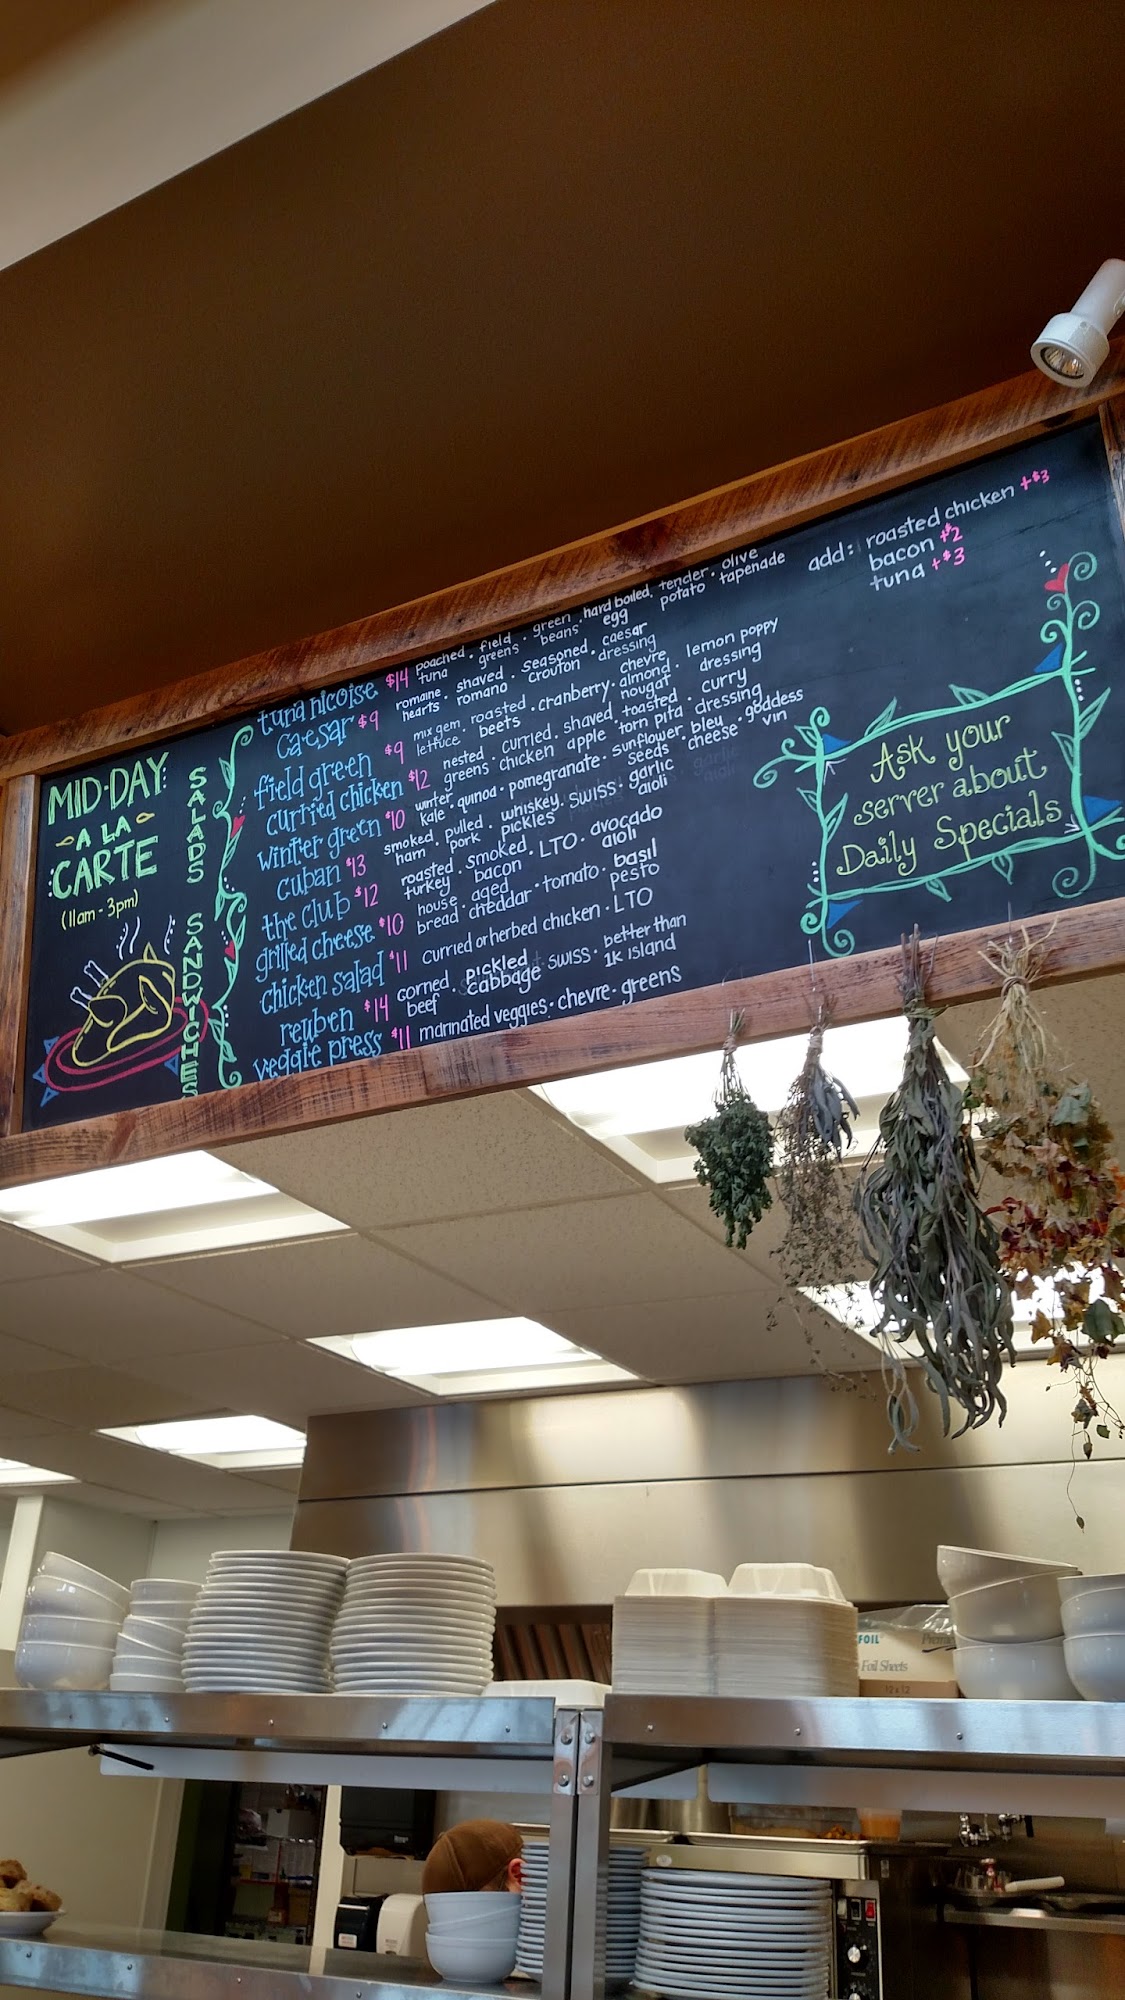 MID-DAY
A LA
CARTE
(11am - 3pm)
SALADS
SANDWICHES
tuna nicoise $14 poached tuna · field greens · green beans · hard boiled egg · tender potato · olive tapenade
caesar $9 romaine hearts · shaved romano · seasoned crouton · caesar dressing
field green $9 mix gem lettuce · roasted beets · cranberry · chevre almond nougat · lemon poppy dressing
curried chicken $12 nested greens · curried chicken · shaved apple · toasted torn pita · curry dressing
winter green $10 winter kale · quinoa · pomegranate · sunflower seeds · bleu cheese · goddess vin
cuban $13 smoked ham · pulled pork · whiskey pickles · swiss · garlic aioli
the club $12 roasted turkey · smoked bacon · LTO · avocado aioli
grilled cheese $10 house bread · aged cheddar · tomato · basil pesto
chicken salad $11 curried or herbed chicken · LTO
reuben $14 corned beef · pickled cabbage · swiss · better than 1k island
veggie press $11 marinated veggies · chevre · greens
add: roasted chicken +$3
bacon +$2
tuna +$3
Ask your
server about
Daily Specials
FOIL
Foil Sheets
12 x 12